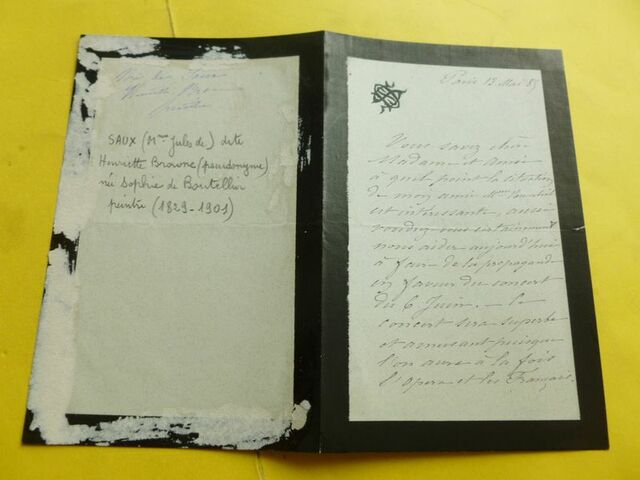 Mme de Saux
Henriette Browne
peintre
SAUX (Mme Jules de) dite
Henriette Browne (pseudonyme)
née Sophie de Boutellier
peintre (1829-1901)
Paris 13 Mai 85
Vous savez chère
Madame et amie
à quel point la situation
de mon amie Mme
est intéressante, aussi
voudrez vous certainement
nous aider aujourd'hui
à faire de la propagande
en faveur du concert
du 6 Juin. — Le
concert sera superbe
et amusant puisque
l'on aura à la fois
l'Opera et les Français.